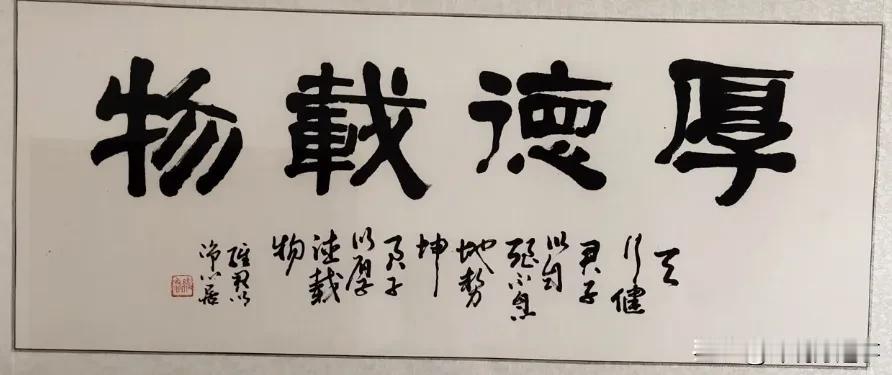 厚德载物
天
行健
君子
以自
强不息
地势
坤
君子
以厚
德载
物